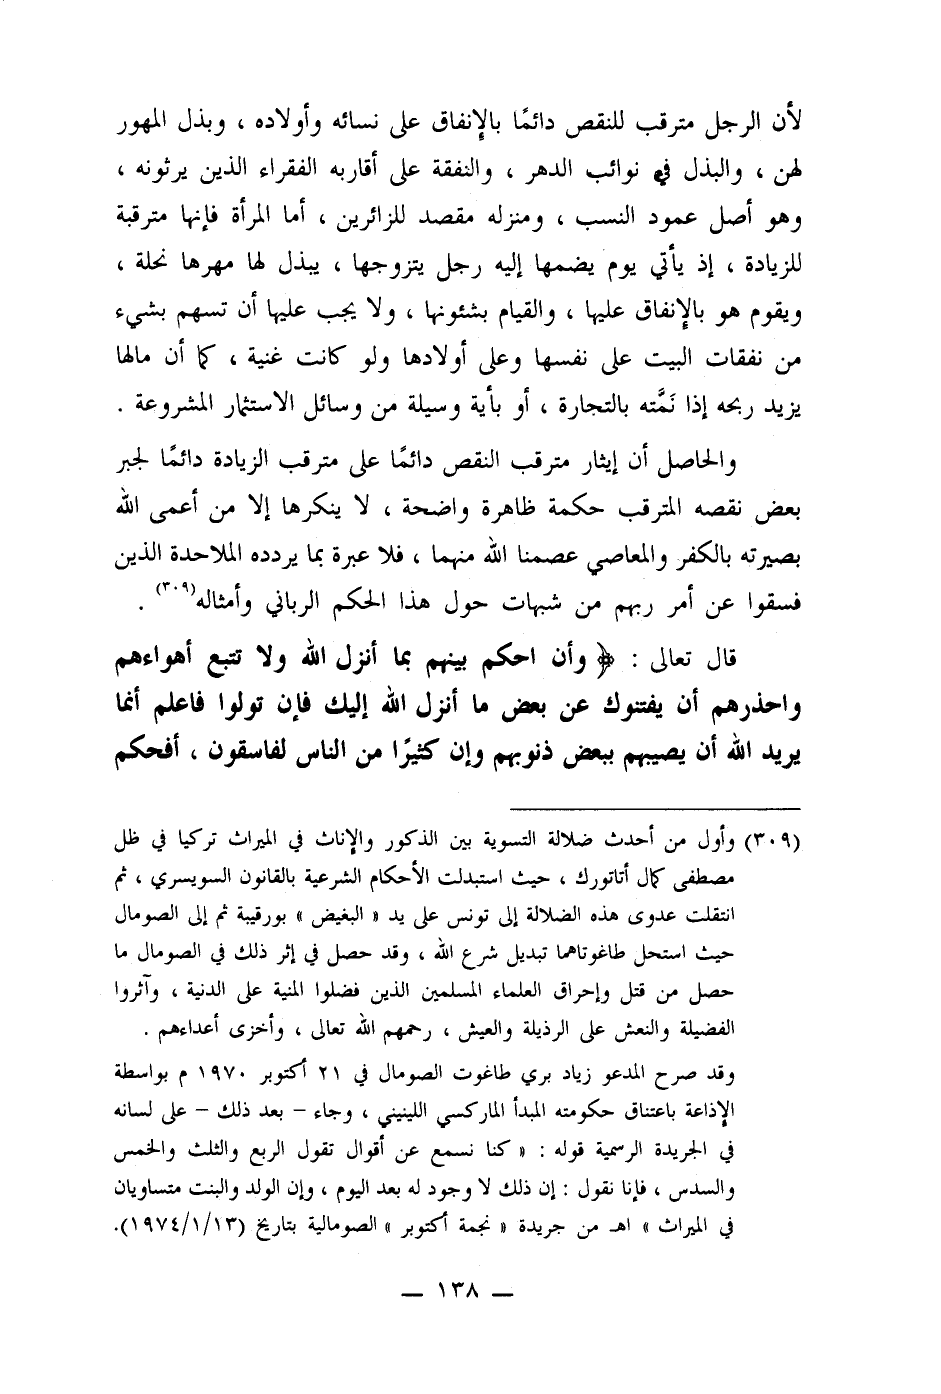 لأن الرجل مترقب للنقص دائمًا بالإنفاق على نسائه وأولاده ، وبذل المهور
لهن ، والبذل في نوائب الدهر ، والنفقة على أقاربه الفقراء الذين يرثونه ،
وهو أصل عمود النسب ، ومنزله مقصد للزائرين ، أما المرأة فإنها مترقبة
للزيادة ، إذ يأتي يوم يضمها إليه رجل يتزوجها ، يبذل لها مهرها نحلة ،
ويقوم هو بالإنفاق عليها ، والقيام بشئونها ، ولا يجب عليها أن تسهم بشيء
من نفقات البيت على نفسها وعلى أولادها ولو كانت غنية ، كما أن مالها
يزيد ربحه إذا نَمَّته بالتجارة ، أو بأية وسيلة من وسائل الاستثمار المشروعة .
والحاصل أن إيثار مترقب النقص دائمًا على مترقب الزيادة دائمًا لجبر
بعض نقصه المترقب حكمة ظاهرة واضحة ، لا ينكرها إلا من أعمى الله
بصيرته بالكفر والمعاصي عصمنا الله منهما ، فلا عبرة بما يردده الملاحدة الذين
فسقوا عن أمر ربهم من شبهات حول هذا الحكم الرباني وأمثاله(٣٠٩) .
قال تعالى : ﴿ وأن احكم بينهم بما أنزل الله ولا تتبع أهواءهم
واحذرهم أن يفتنوك عن بعض ما أنزل الله إليك فإن تولوا فاعلم أنما
يريد الله أن يصيبهم ببعض ذنوبهم وإن كثيرًا من الناس لفاسقون ، أفحكم
(٣٠٩) وأول من أحدث ضلالة التسوية بين الذكور والإناث في الميراث تركيا في ظل
مصطفى كمال أتاتورك ، حيث استبدلت الأحكام الشرعية بالقانون السويسري ، ثم
انتقلت عدوى هذه الضلالة إلى تونس على يد « البغيض » بورقيبة ثم إلى الصومال
حيث استحل طاغوتاهما تبديل شرع الله ، وقد حصل في إثر ذلك في الصومال ما
حصل من قتل وإحراق العلماء المسلمين الذين فضلوا المنية على الدنية ، وآثروا
الفضيلة والنعش على الرذيلة والعيش ، رحمهم الله تعالى ، وأخزى أعداءهم .
وقد صرح المدعو زياد بري طاغوت الصومال في ٢١ أكتوبر ١٩٧٠ م بواسطة
الإذاعة باعتناق حكومته المبدأ الماركسي اللينيني ، وجاء – بعد ذلك – على لسانه
في الجريدة الرسمية قوله : « كنا نسمع عن أقوال تقول الربع والثلث والخمس
والسدس ، فإنا نقول : إن ذلك لا وجود له بعد اليوم ، وإن الولد والبنت متساويان
في الميراث » اهـ من جريدة « نجمة أكتوبر » الصومالية بتاريخ (١٩٧٤/١/١٣).
— ١٣٨ —